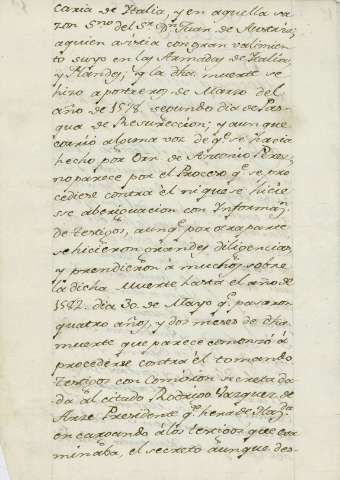 caria de Italia, y en aquella sa-
zon S.rio del S.r D.n Juan de Austria,
a quien asistia con gran valimien
to suyo en las Armadas de Italia,
y Flandes, y q. la dha. muerte se
hizo a postreros de Marzo del
año de 1578. segundo dia de Pas-
qua de Resureccion; y aunque
corrió alguna voz de q.e se havia
hecho por Orn. de Antonio Perez,
no parece por el Proceso q.e se pro
cediese contra el ni que se hicie
se aberiguacion con Informaz.n
de testigos, aunq.e por otra parte
se hicieron grandes diligencias
y prendieron á muchos sobre
la dicha Muerte hasta el año de
1582. dia 30. de Mayo q.e pasaron
quatro años, y dos meses de dha
muerte que parece comenzó á
procederse contra él tomando
testigos con Comision secreta da-
da al citado Rodrigo Vazquez de
Arze Presidente q.e hera de Haz.da
encargando á los testigos que exa
minaba, el secreto aunque des-